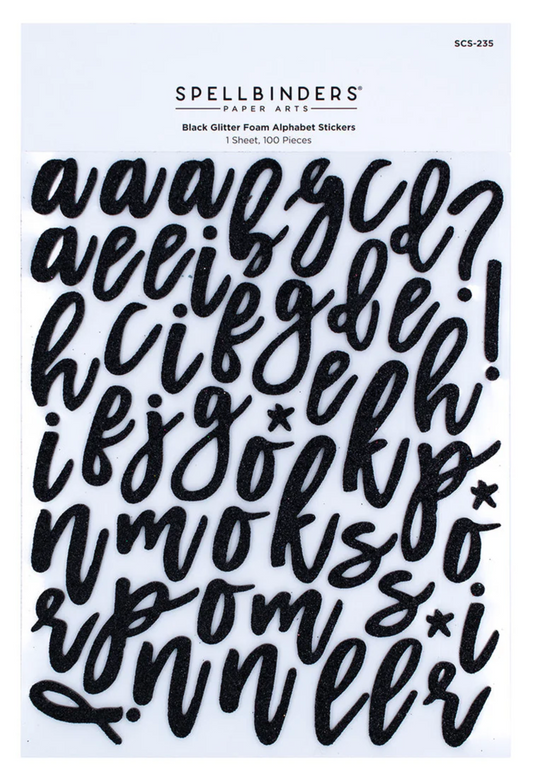 SCS-235
SPELLBINDERS®
PAPER ARTS
Black Glitter Foam Alphabet Stickers
1 Sheet, 100 Pieces
a a a b g c d ?
a e e i b g d e !
h c i f g e k h
i f j g * o k p *
n m o k s o
r p o m s * i
! n n l l r